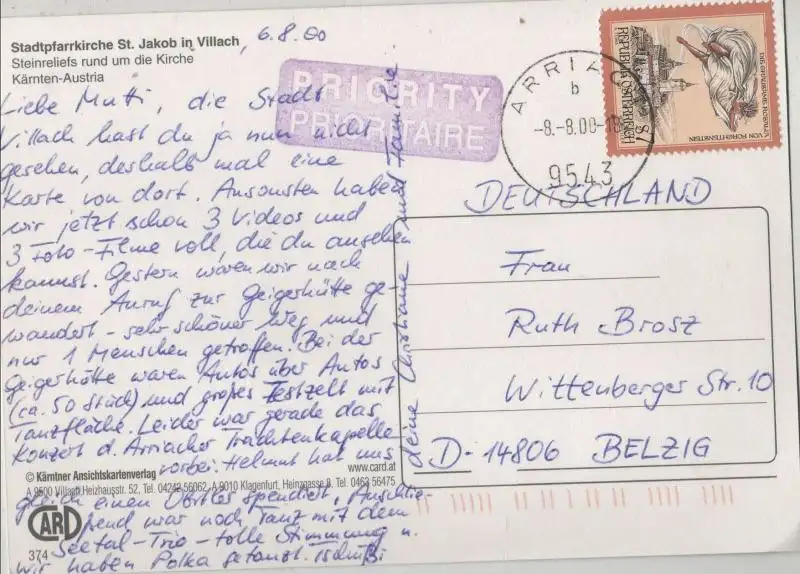 Stadtpfarrkirche St. Jakob in Villach,
Steinreliefs rund um die Kirche
Kärnten-Austria
6.8.00
Liebe Mutti, die Stadt
Villach hast du ja nun nicht
gesehen, deshalb mal eine
Karte von dort. Ansonsten haben
wir jetzt schon 3 Videos und
3 Foto-Filme voll, die du ansehen
kannst. Gestern waren wir nach
deinem Anruf zur Geigerhütte ge-
wandert - sehr schöner Weg und
nur 1 Menschen getroffen. Bei der
Geigerhütte waren Autos über Autos
(ca. 50 Stück) und großes Festzelt mit
Tanzfläche. Leider war gerade das
Konzert d. Arriacher Trachtenkapelle
vorbei. Helmut hat uns
gleich einen Obstler spendiert. Anschlie-
ßend war noch Tanz mit dem
Seetal-Trio - tolle Stimmung u.
wir haben Polka getanzt. Tschüßi
deine Christiane und Familie
© Kärntner Ansichtskartenverlag
www.card.at
A 9500 Villach, Heizhausstr. 52, Tel. 04242 56062, A-9010 Klagenfurt, Heinzgasse 8, Tel. 0463 56475
CARD
374
PRIORITY
PRIORITAIRE
ARRIACH
b
-8.-8.00-18
9543
REPUBLIK ÖSTERREICH
VON FORCHTENSTEIN
DEUTSCHLAND
Frau
Ruth Brosz
Wittenberger Str. 10
D-14806 BELZIG